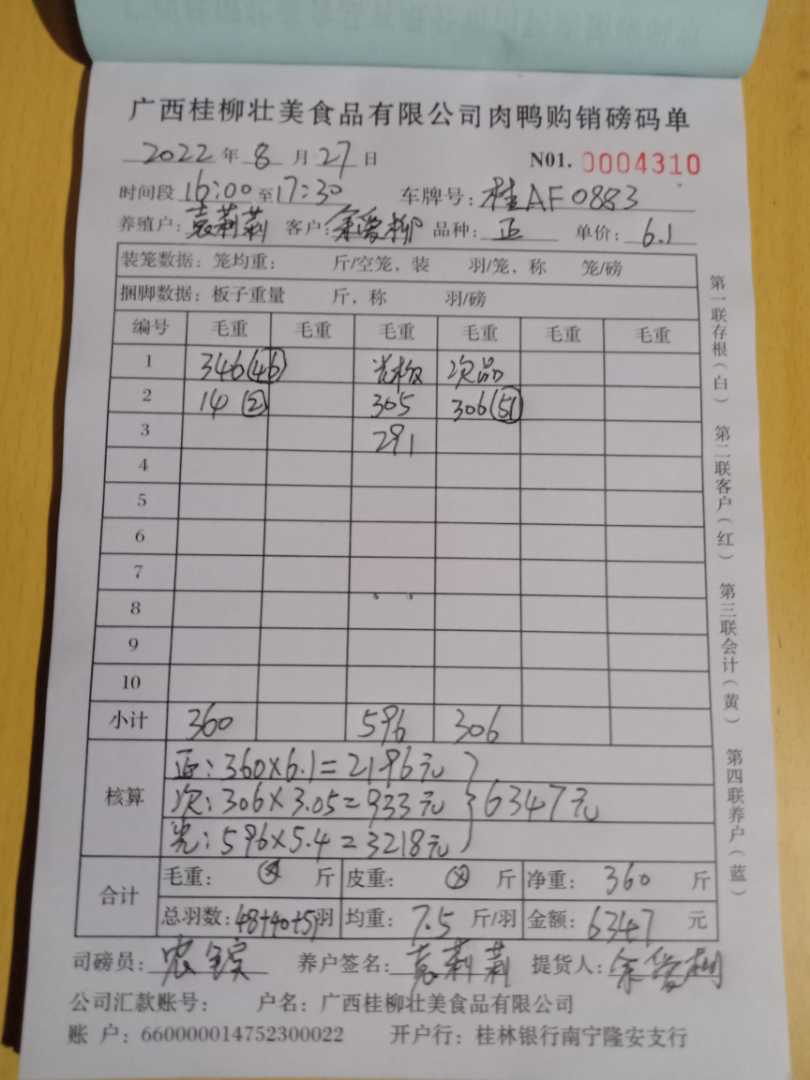 广西桂柳壮美食品有限公司肉鸭购销磅码单
2022 年 8 月 27 日 N01. 0004310
时间段 16:00 至 17:30 车牌号: 桂AF0883
养殖户: 袁莉莉 客户: 余爱柳 品种: 正 单价: 6.1
装笼数据: 笼均重: 斤/空笼, 装 羽/笼, 称 笼/磅
捆脚数据: 板子重量 斤, 称 羽/磅
编号 毛重 毛重 毛重 毛重 毛重 毛重
1 346(46) 光板 次品
2 14 (2) 305 306(51)
3 291
4
5
6
7
8
9
10
小计 360 596 306
核算
正: 360×6.1=2196元
次: 306×3.05=933元 } 6347元
光: 596×5.4=3218元
合计
毛重: 斤 皮重: 斤 净重: 360 斤
总羽数: 48+40+51羽 均重: 7.5 斤/羽 金额: 6347 元
司磅员: 农 养户签名: 袁莉莉 提货人: 余爱柳
公司汇款账号: 户名: 广西桂柳壮美食品有限公司
账 户: 660000014752300022 开户行: 桂林银行南宁隆安支行
第一联存根(白) 第二联客户(红) 第三联会计(黄) 第四联养户(蓝)